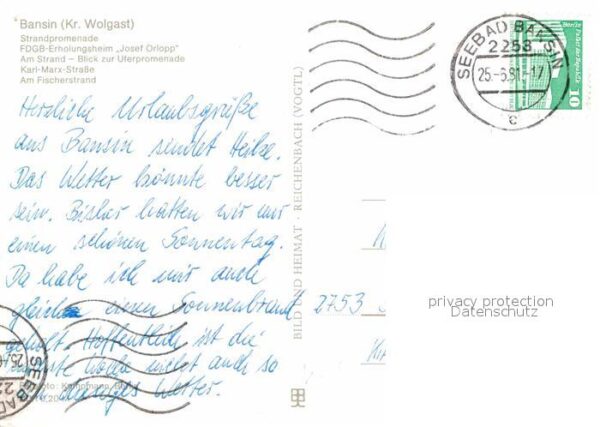 Bansin (Kr. Wolgast)
Strandpromenade
FDGB-Erholungsheim „Josef Orlopp"
Am Strand – Blick zur Uferpromenade
Karl-Marx-Straße
Am Fischerstrand
Herzliche Urlaubsgrüße
aus Bansin sendet Heike.
Das Wetter könnte besser
sein. Bisher hatten wir nur
einen schönen Sonnentag.
Da habe ich mir auch
gleich einen Sonnenbrand
geholt. Hoffentlich ist die
nächste Woche nicht auch so
Wetter.
Foto: Kampmann,
BILD UND HEIMAT · REICHENBACH (VOGTL)
SEEBAD BANSIN
2253
25.-6.81-17
c
10
2753
privacy protection
Datenschutz
SEEBAD
25.-6
22